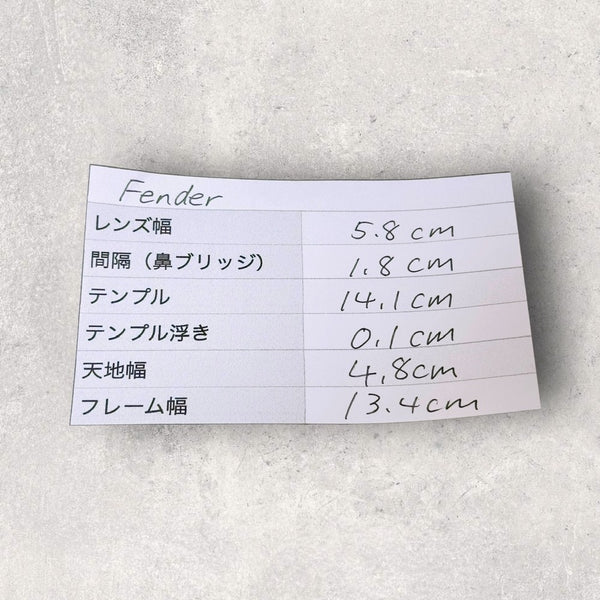 Fender
レンズ幅 5.8cm
間隔（鼻ブリッジ） 1.8cm
テンプル 14.1cm
テンプル浮き 0.1cm
天地幅 4.8cm
フレーム幅 13.4cm